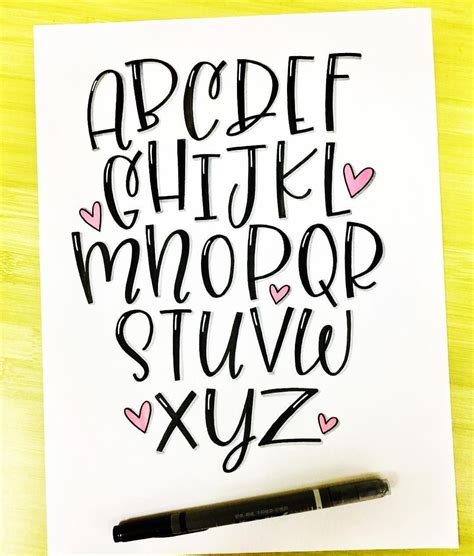 ABCDEF
GHIJKL
MNOPQR
STUVW
XYZ